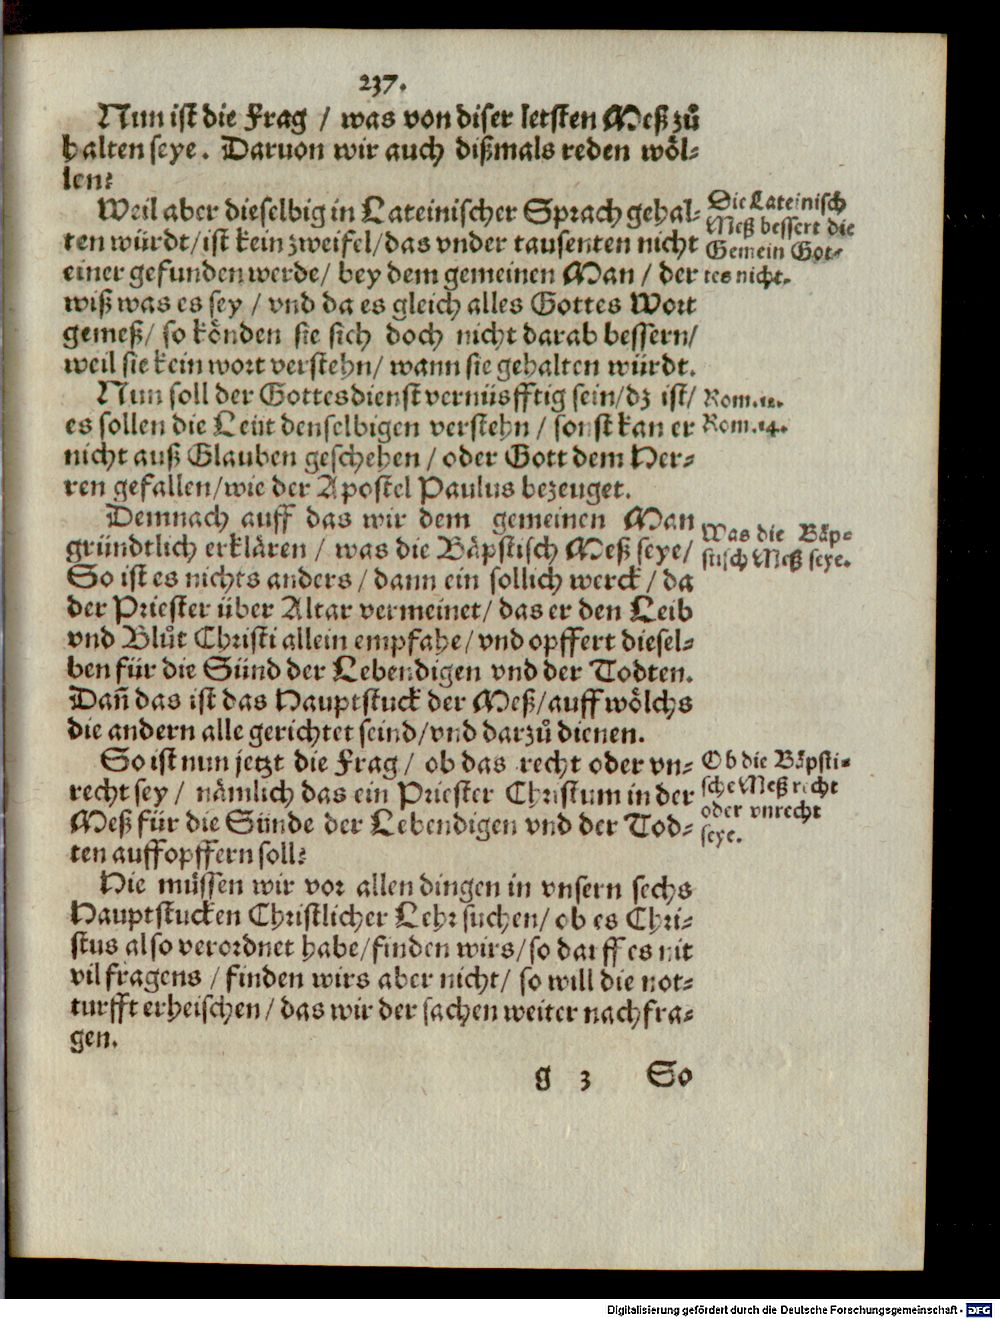 237.
Nun ist die Frag / was von diser letsten Meß zů
halten seye. Daruon wir auch dißmals reden wöl⸗
len?
Weil aber dieselbig in Lateinischer Sprach gehal⸗
ten würdt/ist kein zweifel/das vnder tausenten nicht
einer gefunden werde/ bey dem gemeinen Man / der
wiß was es sey / vnd da es gleich alles Gottes Wort
gemeß/ so könden sie sich doch nicht darab bessern/
weil sie kein wort verstehn/ wann sie gehalten würdt.
Die Lateinisch
Meß bessert die
Gemein Got⸗
tes nicht.
Nun soll der Gottesdienst vernüsfftig sein/dz ist/
es sollen die Leüt denselbigen verstehn / sonst kan er
nicht auß Glauben geschehen / oder Gott dem Her⸗
ren gefallen/wie der Apostel Paulus bezeuget.
Rom.12.
Rom.14.
Demnach auff das wir dem gemeinen Man
gründtlich erklären / was die Bäpstisch Meß seye/
So ist es nichts anders / dann ein sollich werck / da
der Priester über Altar vermeinet/ das er den Leib
vnd Blůt Christi allein empfahe/ vnd opffert diesel⸗
ben für die Sünd der Lebendigen vnd der Todten.
Dañ das ist das Hauptstuck der Meß/auff wölchs
die andern alle gerichtet seind/vnd darzů dienen.
Was die Bäp⸗
stisch Meß seye.
So ist nun jetzt die Frag / ob das recht oder vn⸗
recht sey / nämlich das ein Priester Christum in der
Meß für die Sünde der Lebendigen vnd der Tod⸗
ten auffopffern soll?
Ob die Bäpsti⸗
sche Meß recht
oder vnrecht
seye.
Hie müssen wir vor allen dingen in vnsern sechs
Hauptstucken Christlicher Lehr suchen/ ob es Chri⸗
stus also verordnet habe/finden wirs/so darff es nit
vil fragens / finden wirs aber nicht/ so will die not⸗
turfft erheischen / das wir der sachen weiter nachfra⸗
gen.
g 3 So
Digitalisierung gefördert durch die Deutsche Forschungsgemeinschaft - DFG